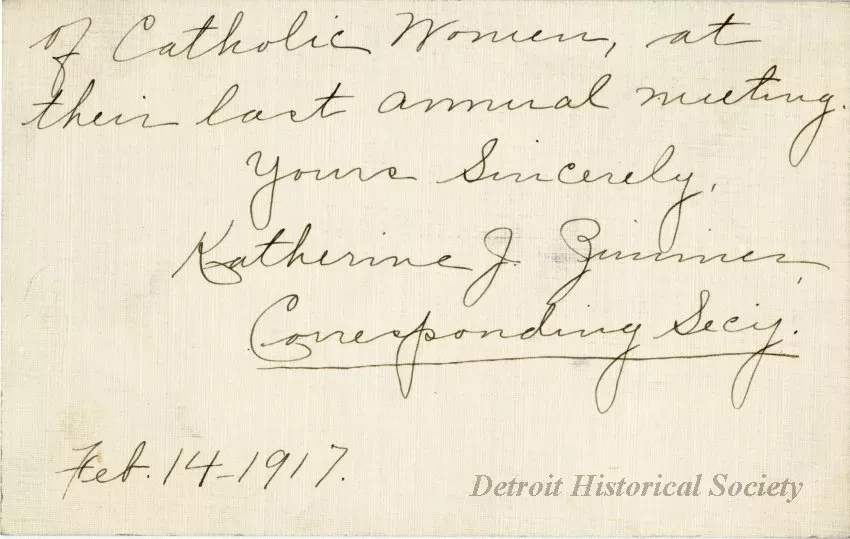 of Catholic Women, at
their last annual meeting.
Yours Sincerely,
Katherine J. Zimmer,
Corresponding Secy.
Feb. 14-1917.
Detroit Historical Society